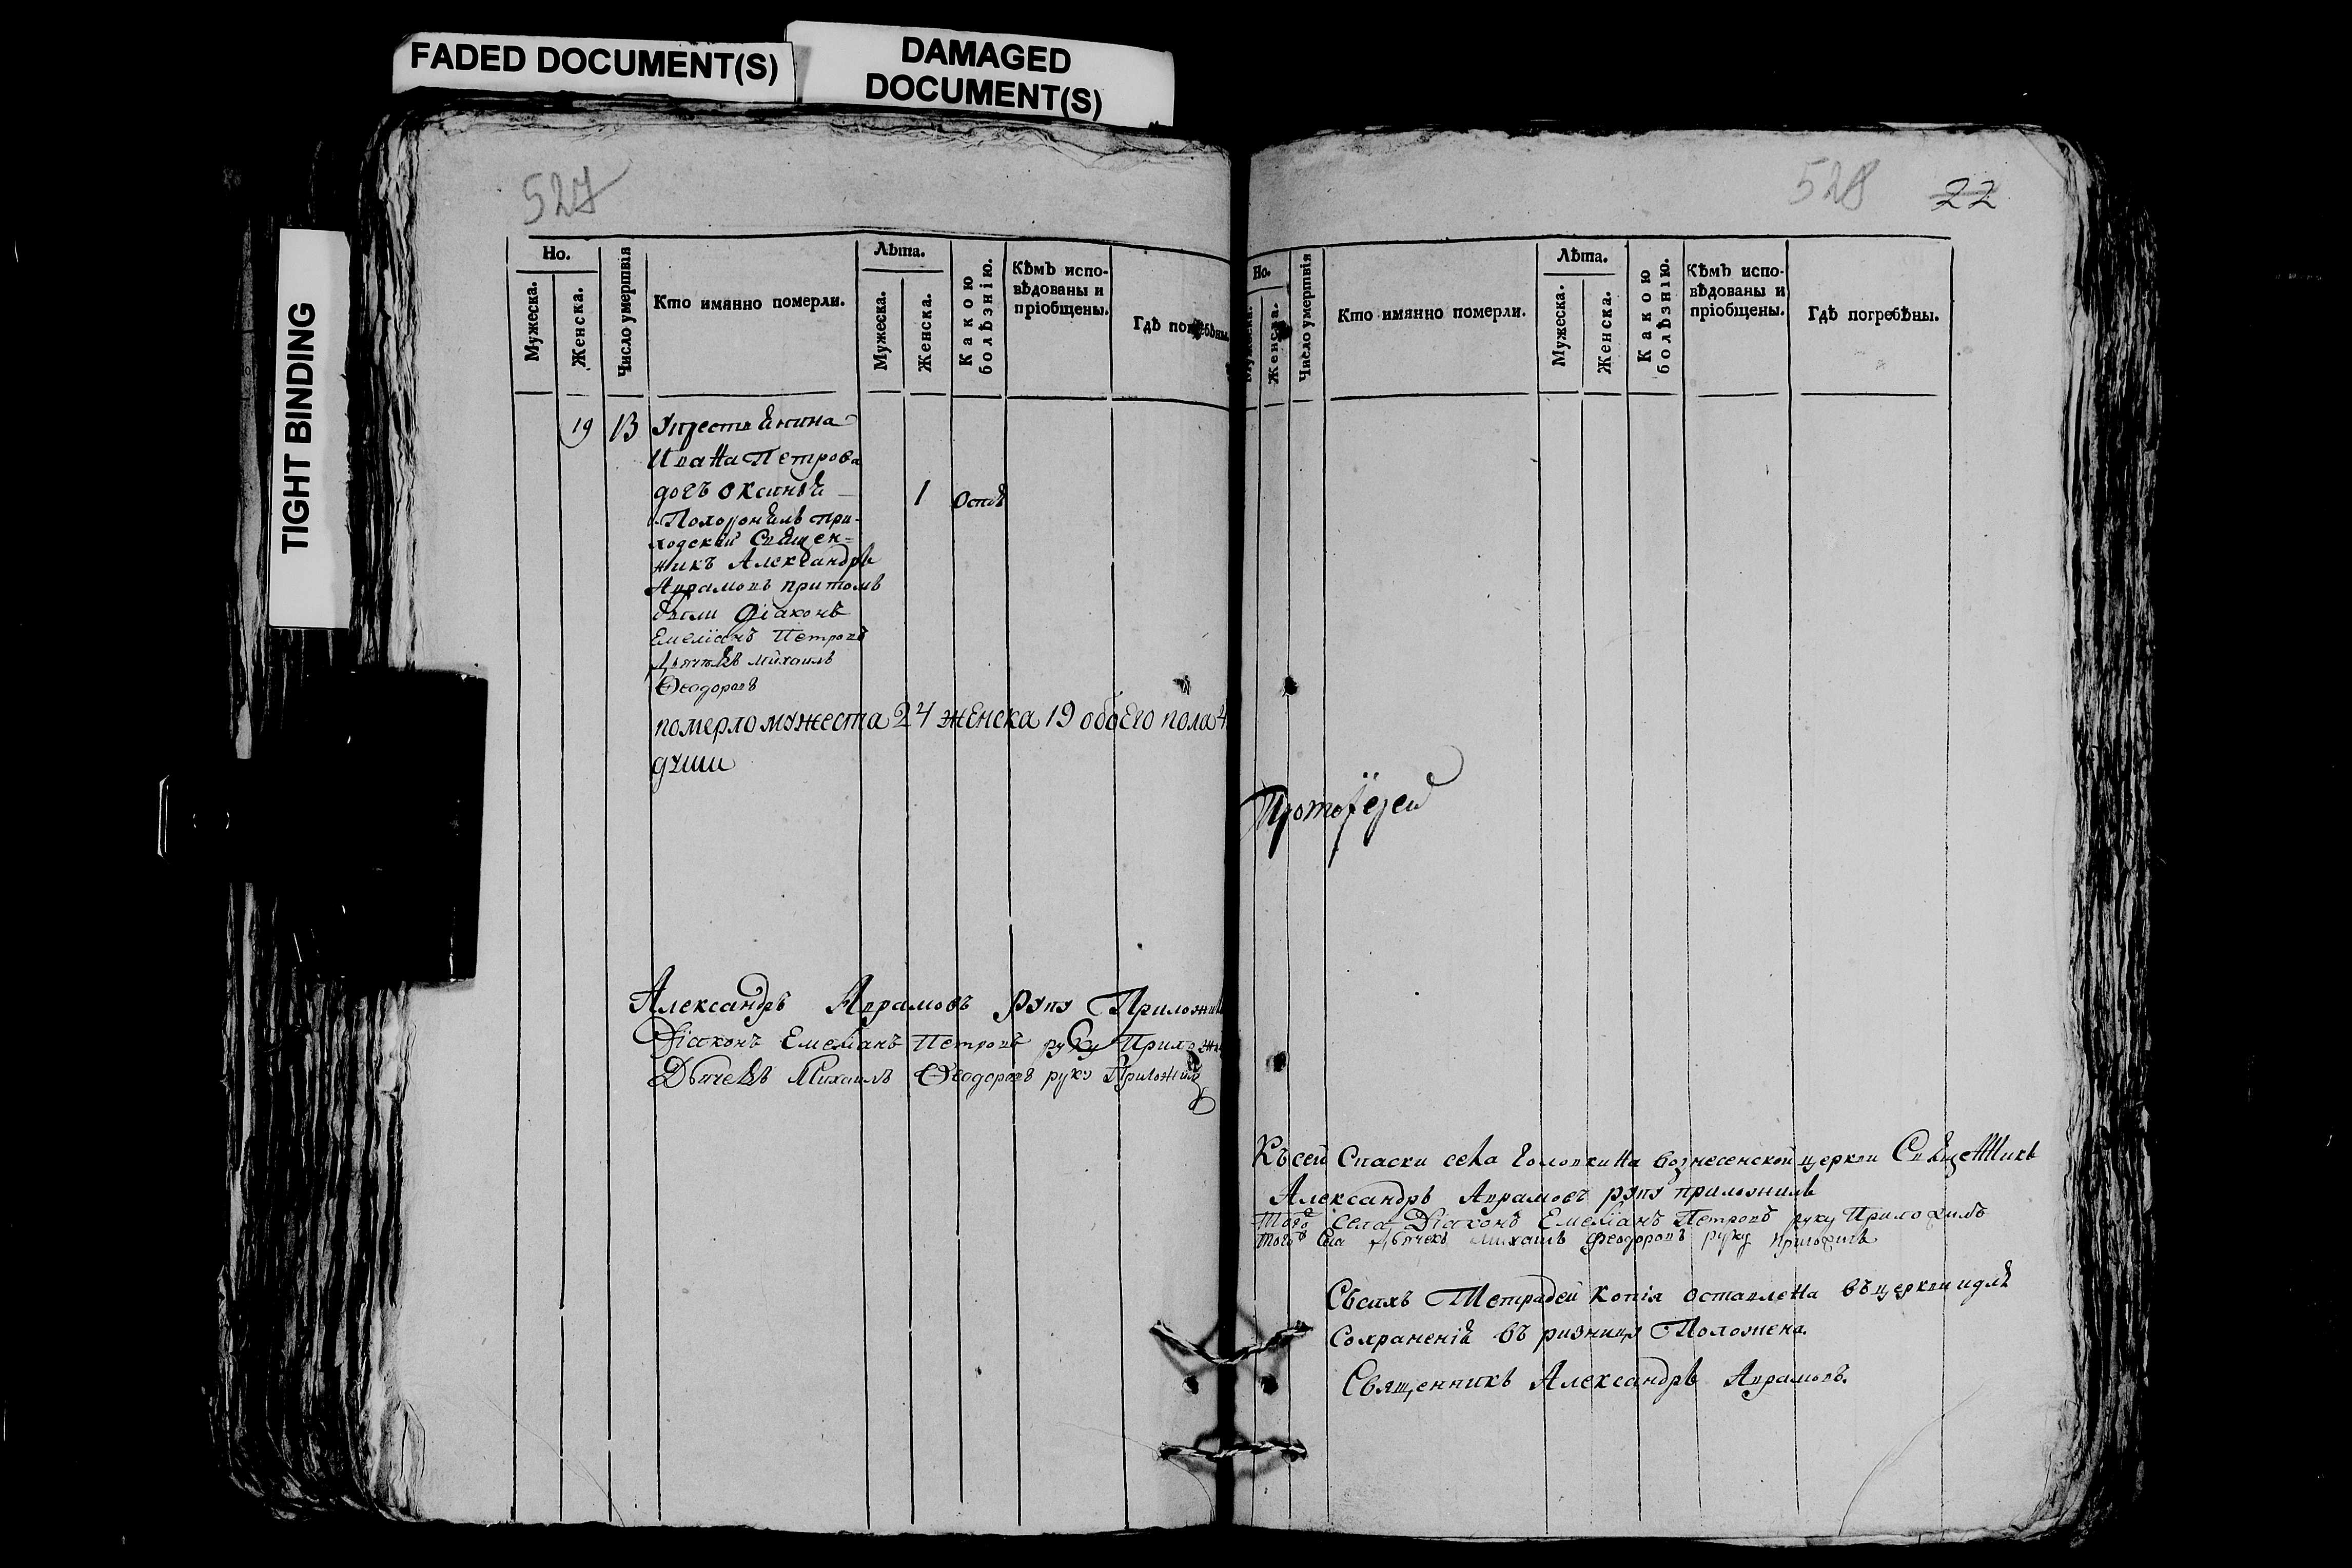 FADED DOCUMENT(S)
DAMAGED
DOCUMENT(S)
TIGHT BINDING
527
Но.
Мужеска.
Женска.
Число умертвія
Кто имянно померли.
Лѣта.
Мужеска.
Женска.
Какою
болѣзнію.
Кѣмъ испо-
вѣдованы и
пріобщены.
Гдѣ погребѣны.
19 13 Крестьенина
Ивана Петрова
дочь Оксинья 1 Оспе
Похоронилъ при-
ходский Свещен=
никъ Александръ
Аврамовъ притомъ
были Діаконъ
Емеліанъ Петровъ
Дьячекъ Михаилъ
Ѳеодоровъ
померло мужеста 24 женска 19 обоего пола 4
души
Александръ Аврамовъ руку Приложи
Діаконъ Емеліанъ Петровъ руку Прилож
Дьячекъ Михаилъ Ѳеодоровъ руку Приложил
528 22
Но.
Мужеска.
Женска.
Число умертвія
Кто имянно померли.
Лѣта.
Мужеска.
Женска.
Какою
болѣзнію.
Кѣмъ испо-
вѣдованы и
пріобщены.
Гдѣ погребѣны.
Протоіерей
Къ сей Спаски села Головкина вознесенской церкви Священникъ
Александръ Аврамовъ руку приложилъ
Того села Діаконъ Емеліанъ Петровъ руку Приложилъ
того села Дьячекъ Михаилъ Феодоровъ руку приложилъ
Съ сихъ Тетрадей копія оставлена въ церкви и для
Сохраненія въ ризница Положена.
Священникъ Александръ Аврамовъ.